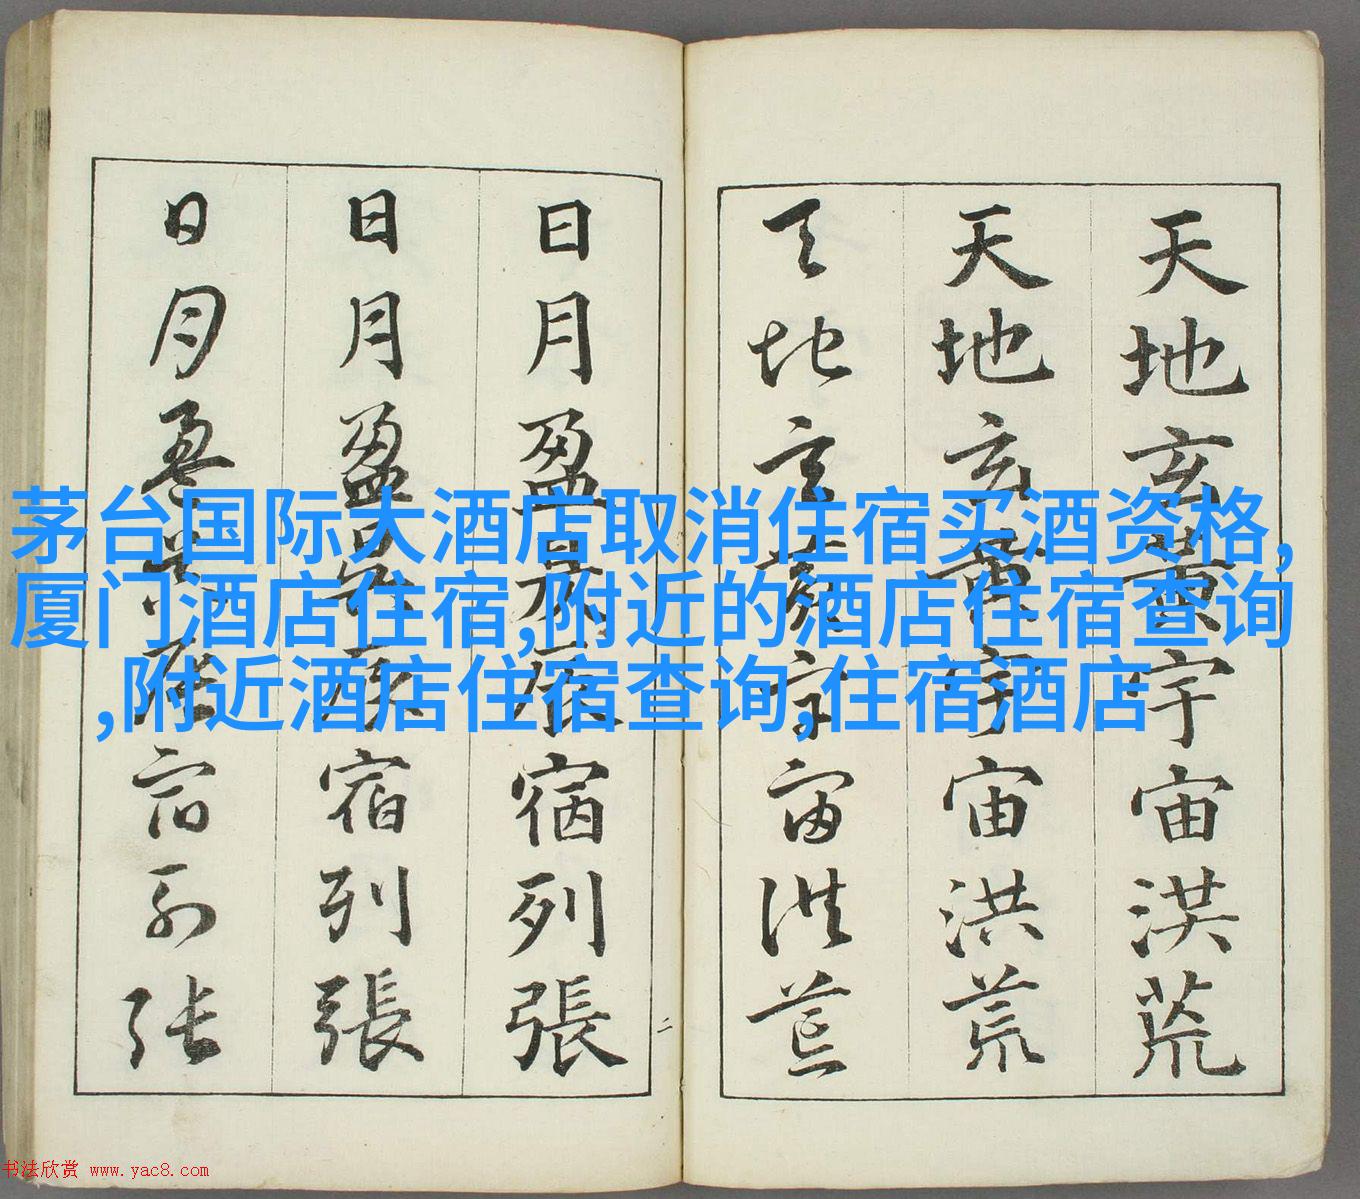 天地玄黃宇宙洪荒
天地玄黃宇宙洪荒
天地玄黃宇宙洪荒
日月盈昃辰宿列張
日月盈昃辰宿列張
日月盈昃辰宿列張
二
茅台国际大酒店取消住宿买酒资格,
厦门酒店住宿,附近的酒店住宿查询
,附近酒店住宿查询,住宿酒店
书法欣赏 www.yac8.com